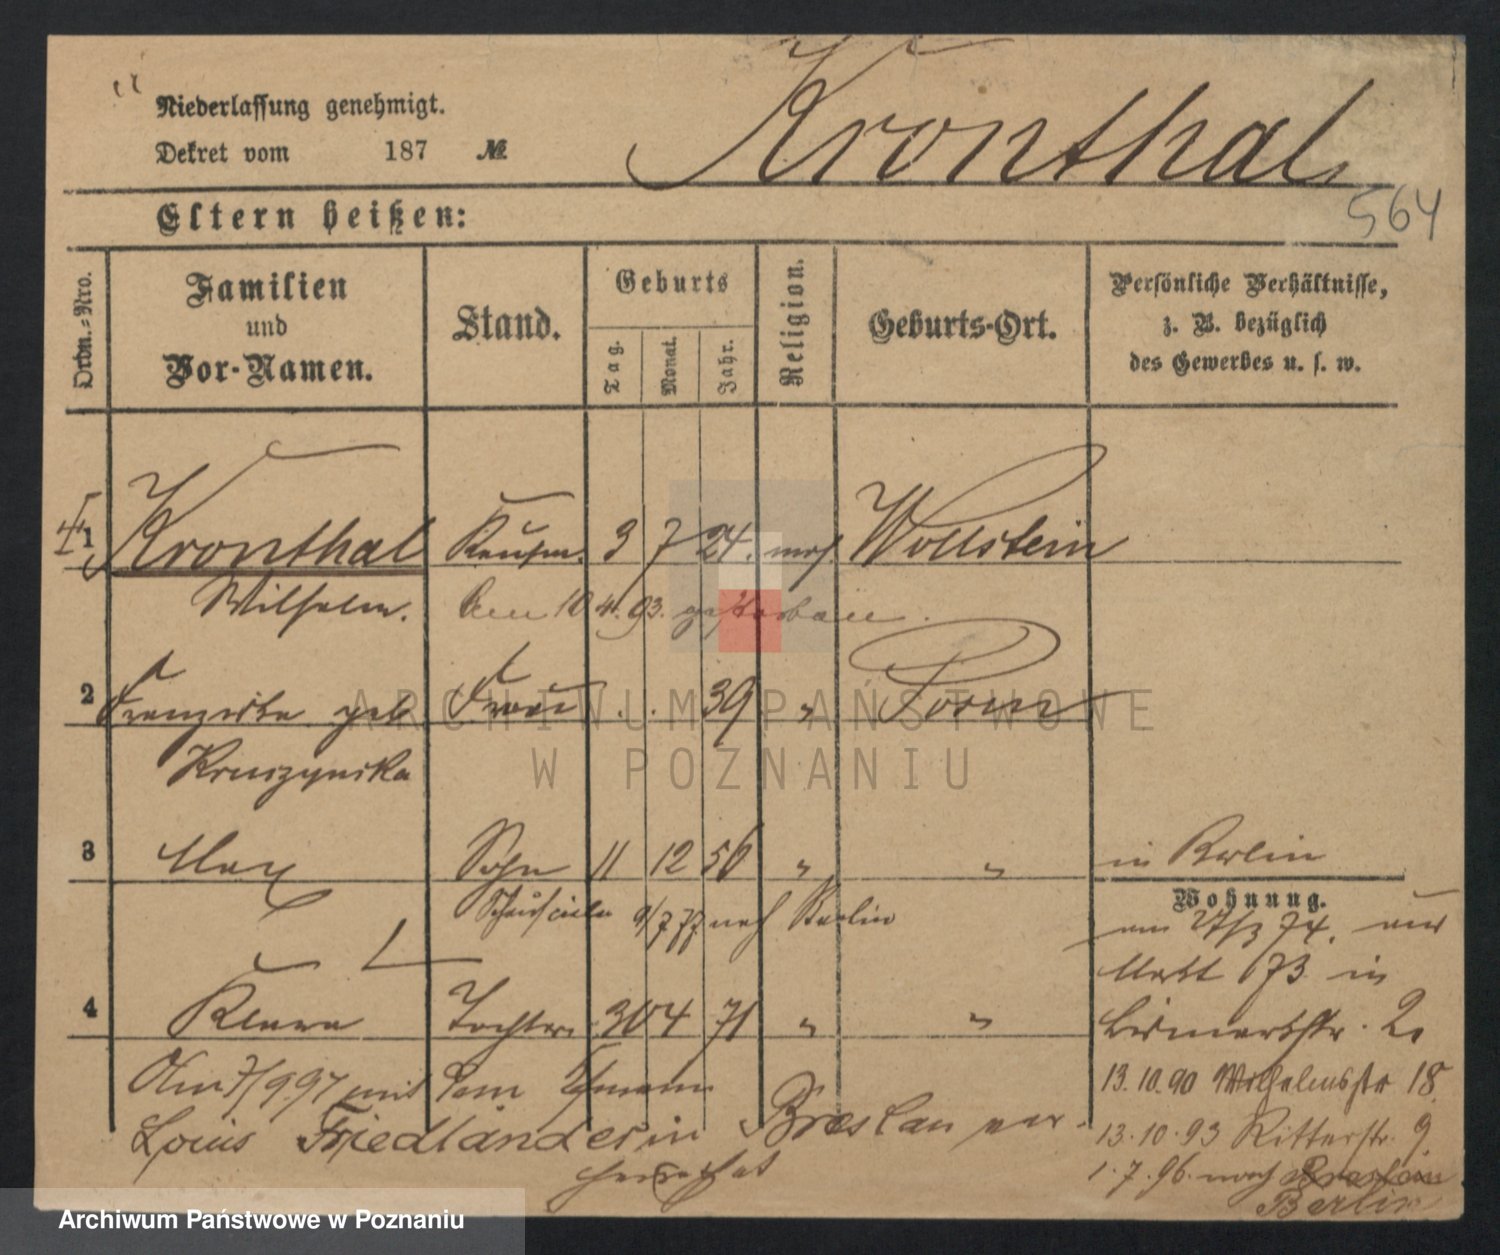 Niederlassung genehmigt.
Dekret vom 187 №
Kronthal
564
Eltern heißen:
Ordn.=Nro.
Familien und Vor-Namen.
Stand.
Geburts
Tag.
Monat.
Jahr.
Religion.
Geburts-Ort.
Persönliche Verhältnisse, z. B. bezüglich des Gewerbes u. s. w.
1 Kronthal Kaufm. 3 7 24. mos. Wollstein
Wilhelm. Am 10 4. 93. gestorben.
2 Franziska geb Frau . . 39 " Posen
Kruszynska
3 Max Sohn 11 12 56 " " in Berlin
9/7 77 nach Berlin
Wohnung.
am 27/3 74. aus
Markt 73 in
4 Klara Tochter. 30 4 71 " "
Bismarckstr. 2.
Am 7/9 97 mit dem
13.10.90 Wilhelmstr 18.
Louis Friedländer in Breslau ver-
13.10.93 Ritterstr. 9
heirathet
1.7.96. nach Breslau
Berlin
ARCHIWUM PAŃSTWOWE
W POZNANIU
Archiwum Państwowe w Poznaniu